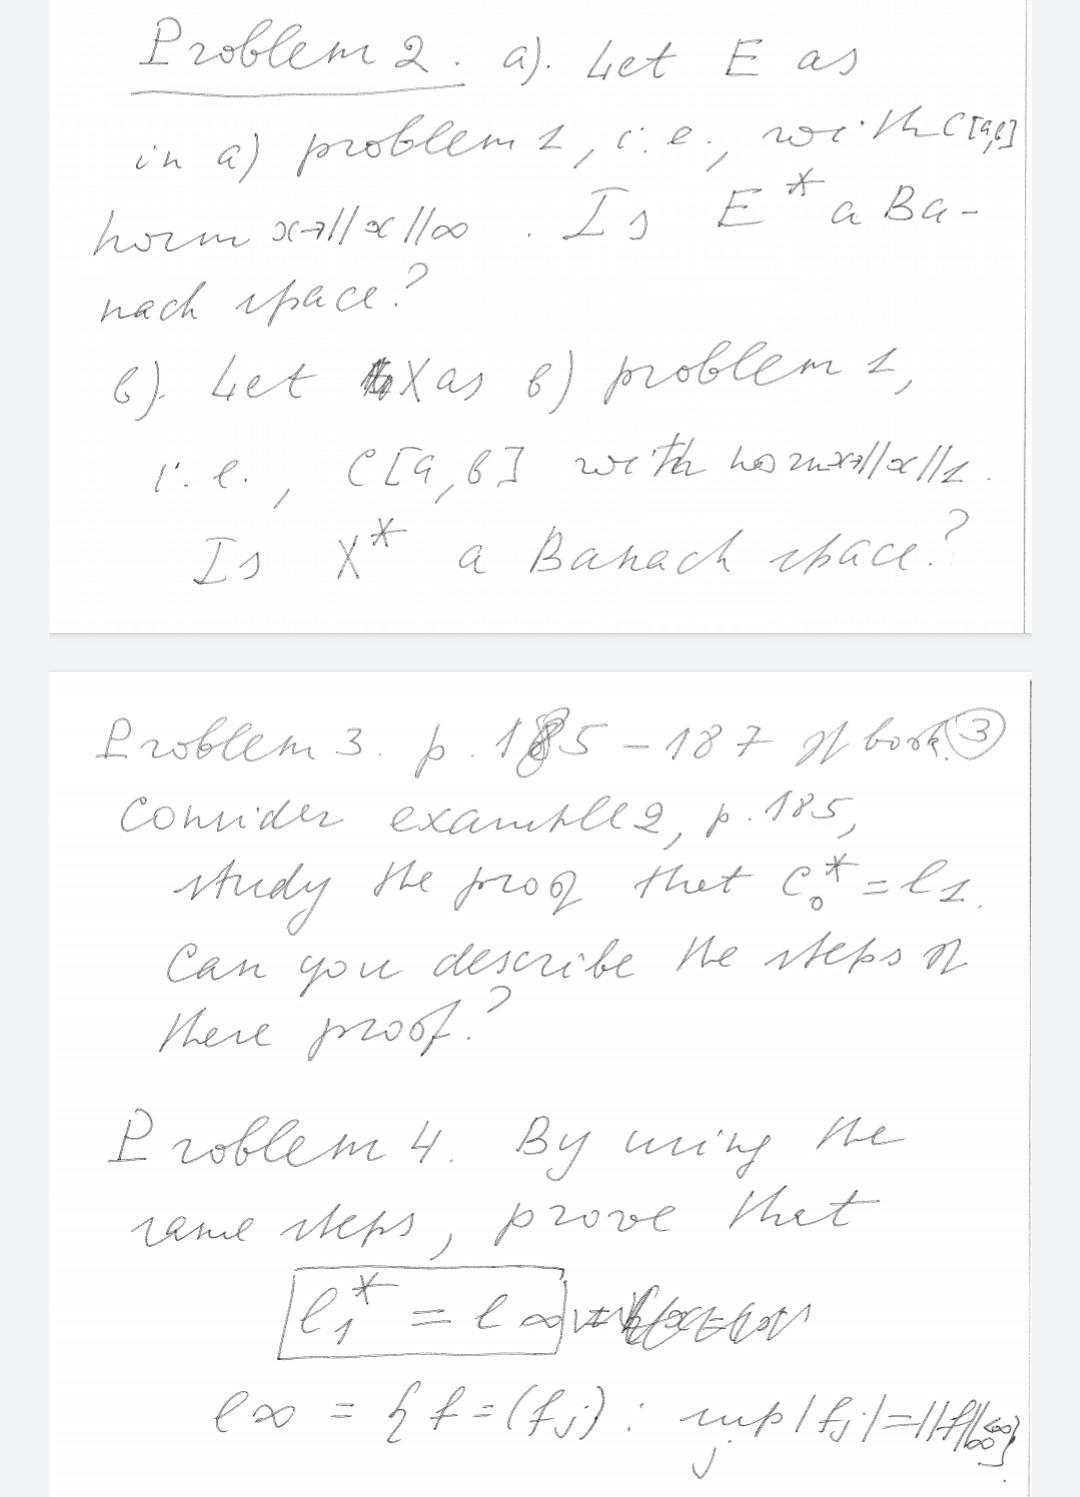 Problem 2. a). Let E as
in a) problem 1, i.e., with C[a,b]
norm x→||x||∞. Is E* a Ba-
nach space?
b). Let X as b) problem 1,
i.e., C[a,b] with norm x→||x||1.
Is X* a Banach space?
Problem 3. p. 185 – 187 of book. 3
Consider example 2, p. 185,
study the proof that c₀* = l1.
Can you describe the steps of
there proof?
Problem 4. By using the
same steps, prove that
l₁* = l∞
l∞ = { f = (fj) : sup |fj| = ||f||∞ <∞}.
j